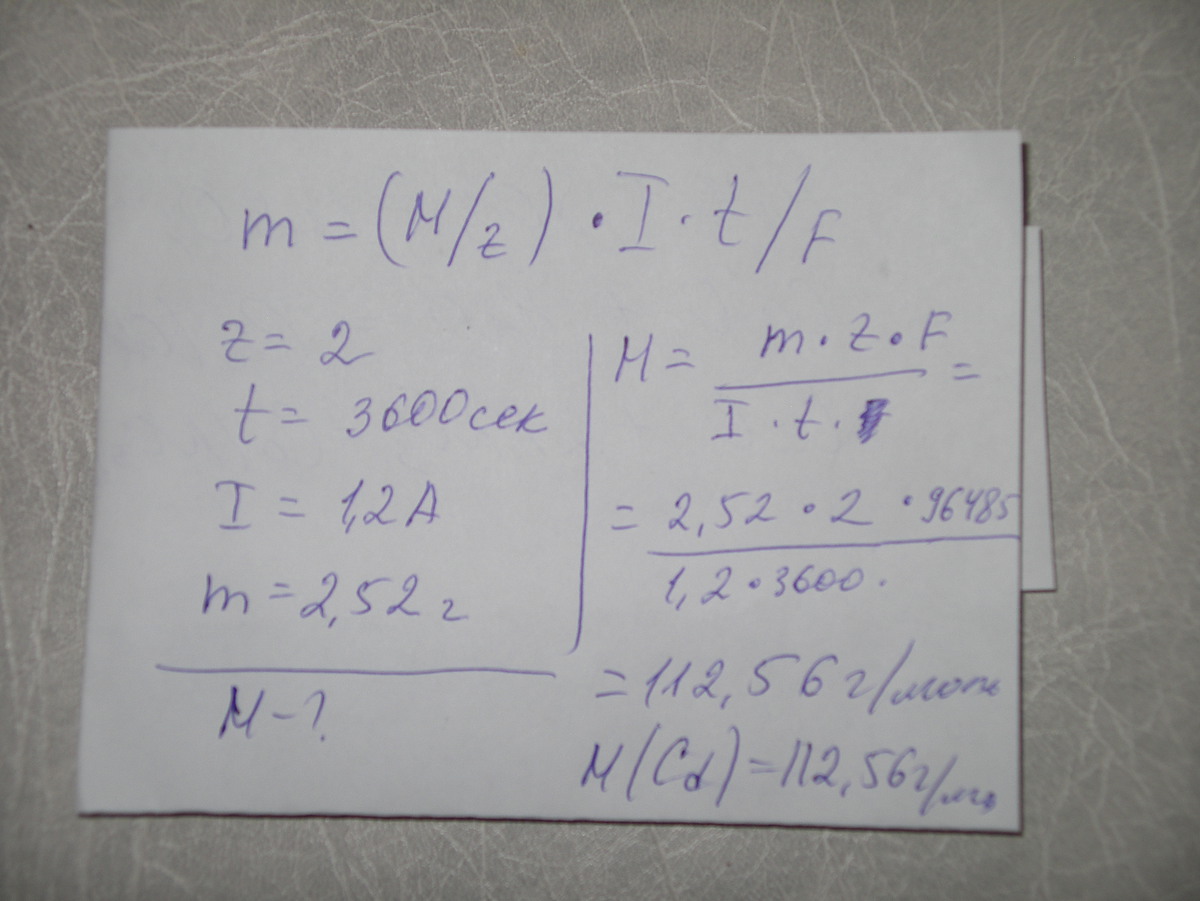 m = (M/z) · I · t/F
z = 2
t = 3600сек
I = 1,2А
m = 2,52 г
M - ?
M = m · z · F / I · t · =
= 2,52 · 2 · 96485 / 1,2 · 3600 .
= 112,56 г/моль
M(Cd) = 112,56 г/мо